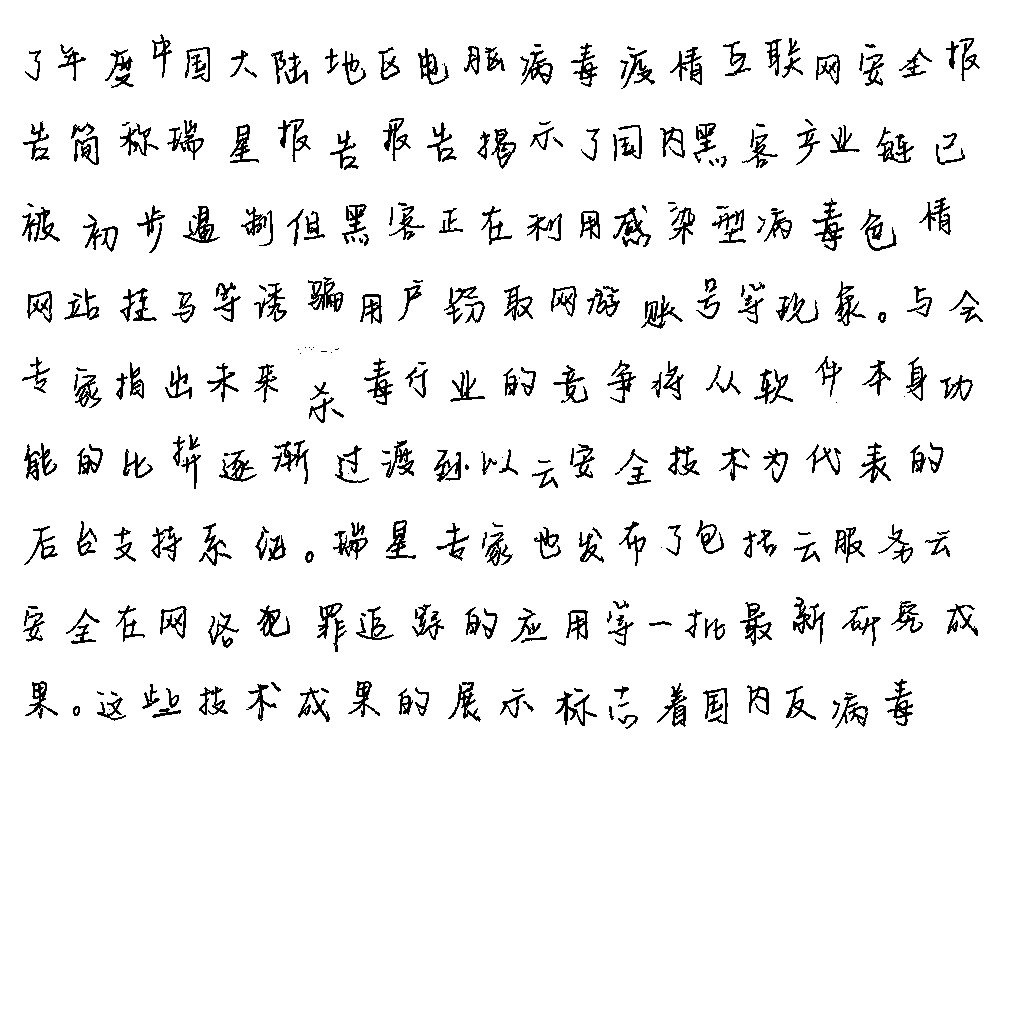 了年度中国大陆地区电脑病毒疫情互联网安全报
告简称瑞星报告报告揭示了国内黑客产业链已
被初步遏制但黑客正在利用感染型病毒色情
网站挂马等诱骗用户窃取网游账号等现象。与会
专家指出未来杀毒行业的竞争将从软件本身功
能的比拼逐渐过渡到以云安全技术为代表的
后台支持系统。瑞星专家也发布了包括云服务云
安全在网络犯罪追踪的应用等一批最新研究成
果。这些技术成果的展示标志着国内反病毒